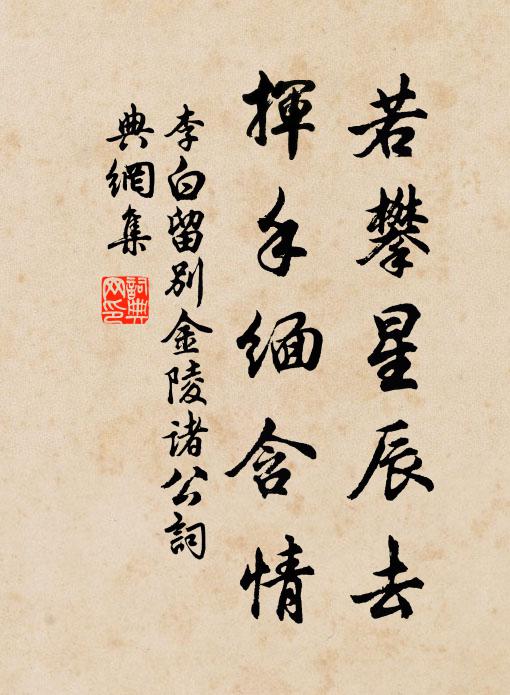 若攀星辰去
揮手緬含情
李白留别金陵诸公詞
典網集
詞典
网印